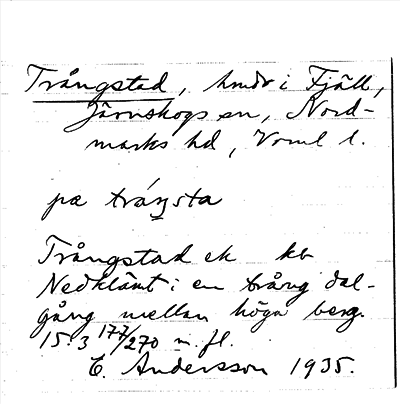 Trångstad, hmdr i Fjäll,
Järnskogs sn, Nord-
marks hd, Vrml l.
pæ tráŋsta
Trångstad ek kb
Nedklämt i en trång dal-
gång mellan höga berg.
15:3 177/270 m. fl.
E. Andersson 1935.